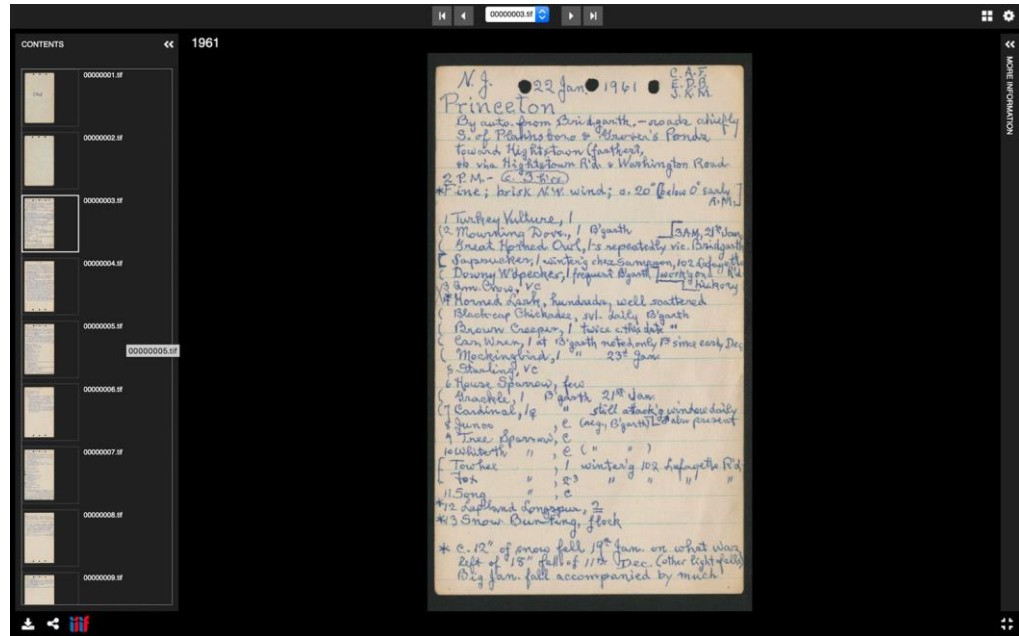 00000003.tif
CONTENTS
1961
MORE INFORMATION
00000001.tif
1961
00000002.tif
00000003.tif
00000004.tif
00000005.tif
00000005.tif
00000006.tif
00000007.tif
00000008.tif
00000009.tif
iiif
N.J. 22 Jan. 1961 C.A.F.
E.P.B.
J.K.M.
Princeton
By auto. from Bridgarth, - roads chiefly
S. of Plainsboro & Grover's Ponds
toward Hightstown (farthest,
via Hightstown R'd. & Washington Road
2 P.M. - c. 3 hrs
*Fine; brisk N.W. wind; c. 20° [below 0° early
A.M.]
1 Turkey Vulture, 1
(2 Mourning Dove, 1 B'garth [3AM, 21st Jan.
( Great Horned Owl, 1-s repeatedly vic. Bridgarth
[ Sapsucker, 1 winter'g chez Sampson, 102 Lafayette R'd
( Downy W'pecker, 1 frequent B'garth [work'g on
Hickory
3 Am. Crow, vc
*4 Horned Lark, hundreds, well scattered
( Black-cap Chickadee, svl. daily B'garth
( Brown Creeper, 1 twice c. this date "
( Car. Wren, 1 at B'garth noted only 1st since early Dec
( Mockingbird, 1 " 23d Jan.
5 Starling, vc
6 House Sparrow, few
( Grackle, 1 B'garth 21st Jan.
(7 Cardinal, 1♀ " still attack'g window daily
8 Junco, c (neg, B'garth) also present
9 Tree Sparrow, c
10 Whiteth " , c ( " " )
[ Towhee , 1 winter'g 102 Lafayette R'd
[ Fox " , 2-3 " " " "
11 Song " , c
*12 Lapland Longspur, 2
*13 Snow Bunting, flock
* c. 12" of snow fell 19th Jan. on what was
left of 18" fall of 11th Dec. (other light falls)
Big Jan. fall accompanied by much